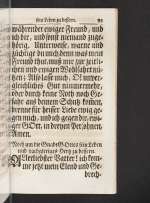 sein Leben zu bessern. 91
währender ewiger Freund, und
mit dir, und sonst niemand zuge-
hörig. Unterweise, warne und
züchtige du mich denn was mein
Freund thut, muß mir zur zeitli-
chen und ewigen Wohlfahrt nü-
tzen; Also lasse mich, O! unver-
gleichliches Gut nimmermehr,
oder durch keine Noth noch Ge-
fade aus deinem Schutz kosten,
brenne für heisser Liebe ewig ge-
gen mich, und ich gegen dir, ewi-
ger GOtt, in dreyen Persohnen,
Amen.
Noch um die Gnad GOttes sein Leben
und bußfertiges Hertz zu bessern.
Allerliebster Vatter! ich kom-
me jetzt mein Elend und Ge-
brech-